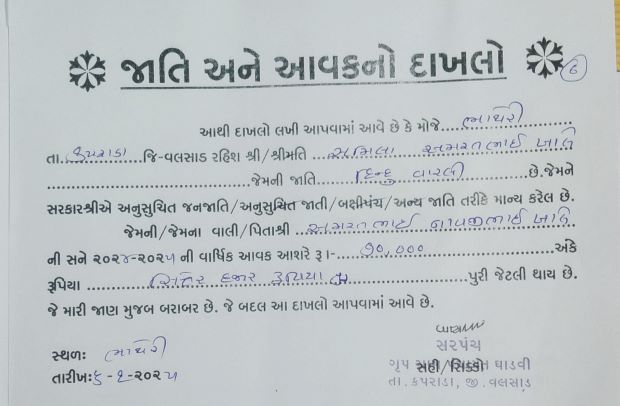 જાતિ અને આવકનો દાખલો
૬
આથી દાખલો લખી આપવામાં આવે છે કે મોજે....ભાથેરી
તા. કપરાડા જિ-વલસાડ રહિશ શ્રી/શ્રીમતિ ...સમિલા અમરતભાઈ
જેમની જાતિ....હિન્દુ વારલી....છે.જેમને
સરકારશ્રીએ અનુસુચિત જનજાતિ/અનુસુચિત જાતી/બક્ષીપંચ/અન્ય જાતિ તરીકે માન્ય કરેલ છે.
જેમની/જેમના વાલી/પિતાશ્રી ...અમરતભાઈ
ની સને ૨૦૨૪-૨૦૨૫ ની વાર્ષિક આવક આશરે રૂા.- ૭૦,૦૦૦ અંકે
રૂપિયા સિત્તેર હજાર રૂપિયા પુરી જેટલી થાય છે.
જે મારી જાણ મુજબ બરાબર છે. જે બદલ આ દાખલો આપવામાં આવે છે.
સરપંચ
સ્થળઃ ભાથેરી
ગૃપ સહી/સિક્કો ઘાડવી
તારીખઃ ૬-૧-૨૦૨૫
તા. કપરાડા, જી. વલસાડ